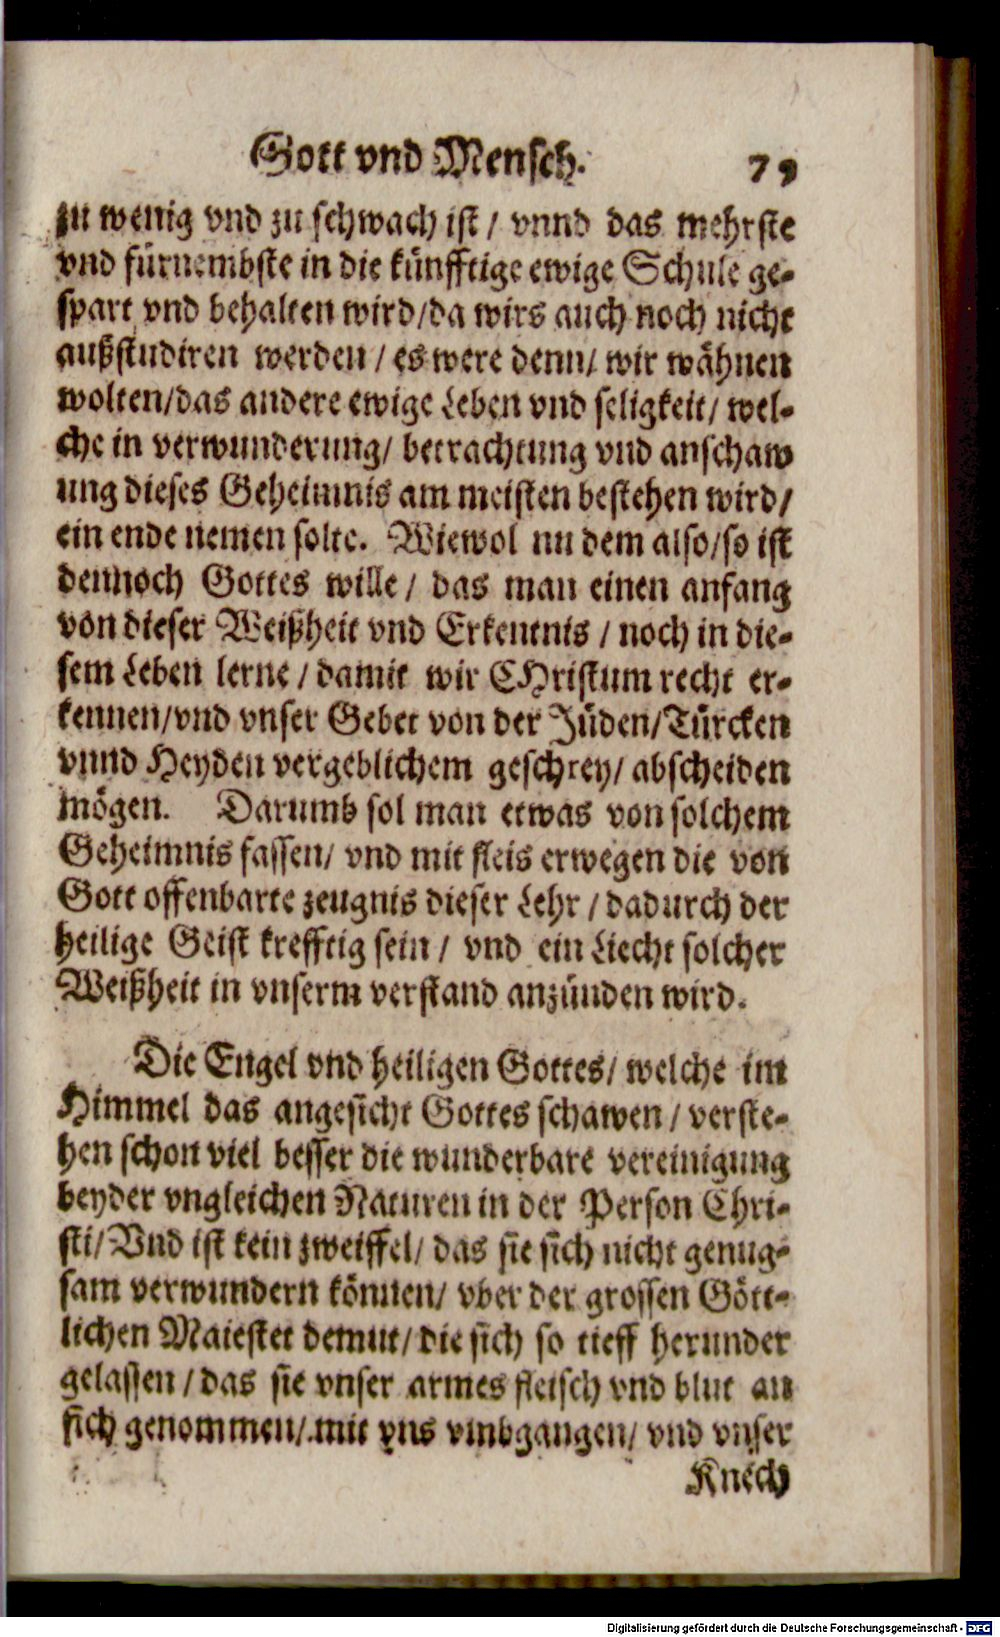 Gott vnd Mensch. 79
zu wenig vnd zu schwach ist / vnnd das mehrste
vnd fürnembste in die künfftige ewige Schule ge-
spart vnd behalten wird/da wirs auch noch nicht
außstudiren werden / es were denn/ wir wähnen
wolten/das andere ewige Leben vnd seligkeit/ wel-
che in verwunderung/ betrachtung vnd anschaw
ung dieses Geheimnis am meisten bestehen wird/
ein ende nemen solte. Wiewol nu dem also/so ist
dennoch Gottes wille / das man einen anfang
von dieser Weißheit vnd Erkentnis / noch in die-
sem Leben lerne / damit wir CHristum recht er-
kennen/vnd vnser Gebet von der Jüden/Türcken
vnnd Heyden vergeblichem geschrey/ abscheiden
mögen. Darumb sol man etwas von solchem
Geheimnis fassen/ vnd mit fleis erwegen die von
Gott offenbarte zeugnis dieser Lehr / dadurch der
heilige Geist krefftig sein / vnd ein Liecht solcher
Weißheit in vnserm verstand anzünden wird.
Die Engel vnd heiligen Gottes/ welche im
Himmel das angesicht Gottes schawen / verste-
hen schon viel besser die wunderbare vereinigung
beyder vngleichen Naturen in der Person Chri-
sti/ Vnd ist kein zweiffel/ das sie sich nicht genug-
sam verwundern können/ vber der grossen Gött-
lichen Maiestet demut/ die sich so tieff herunder
gelassen / das sie vnser armes fleisch vnd blut an
sich genommen/ mit vns vmbgangen/ vnd vnser
Knech
Digitalisierung gefördert durch die Deutsche Forschungsgemeinschaft - DFG